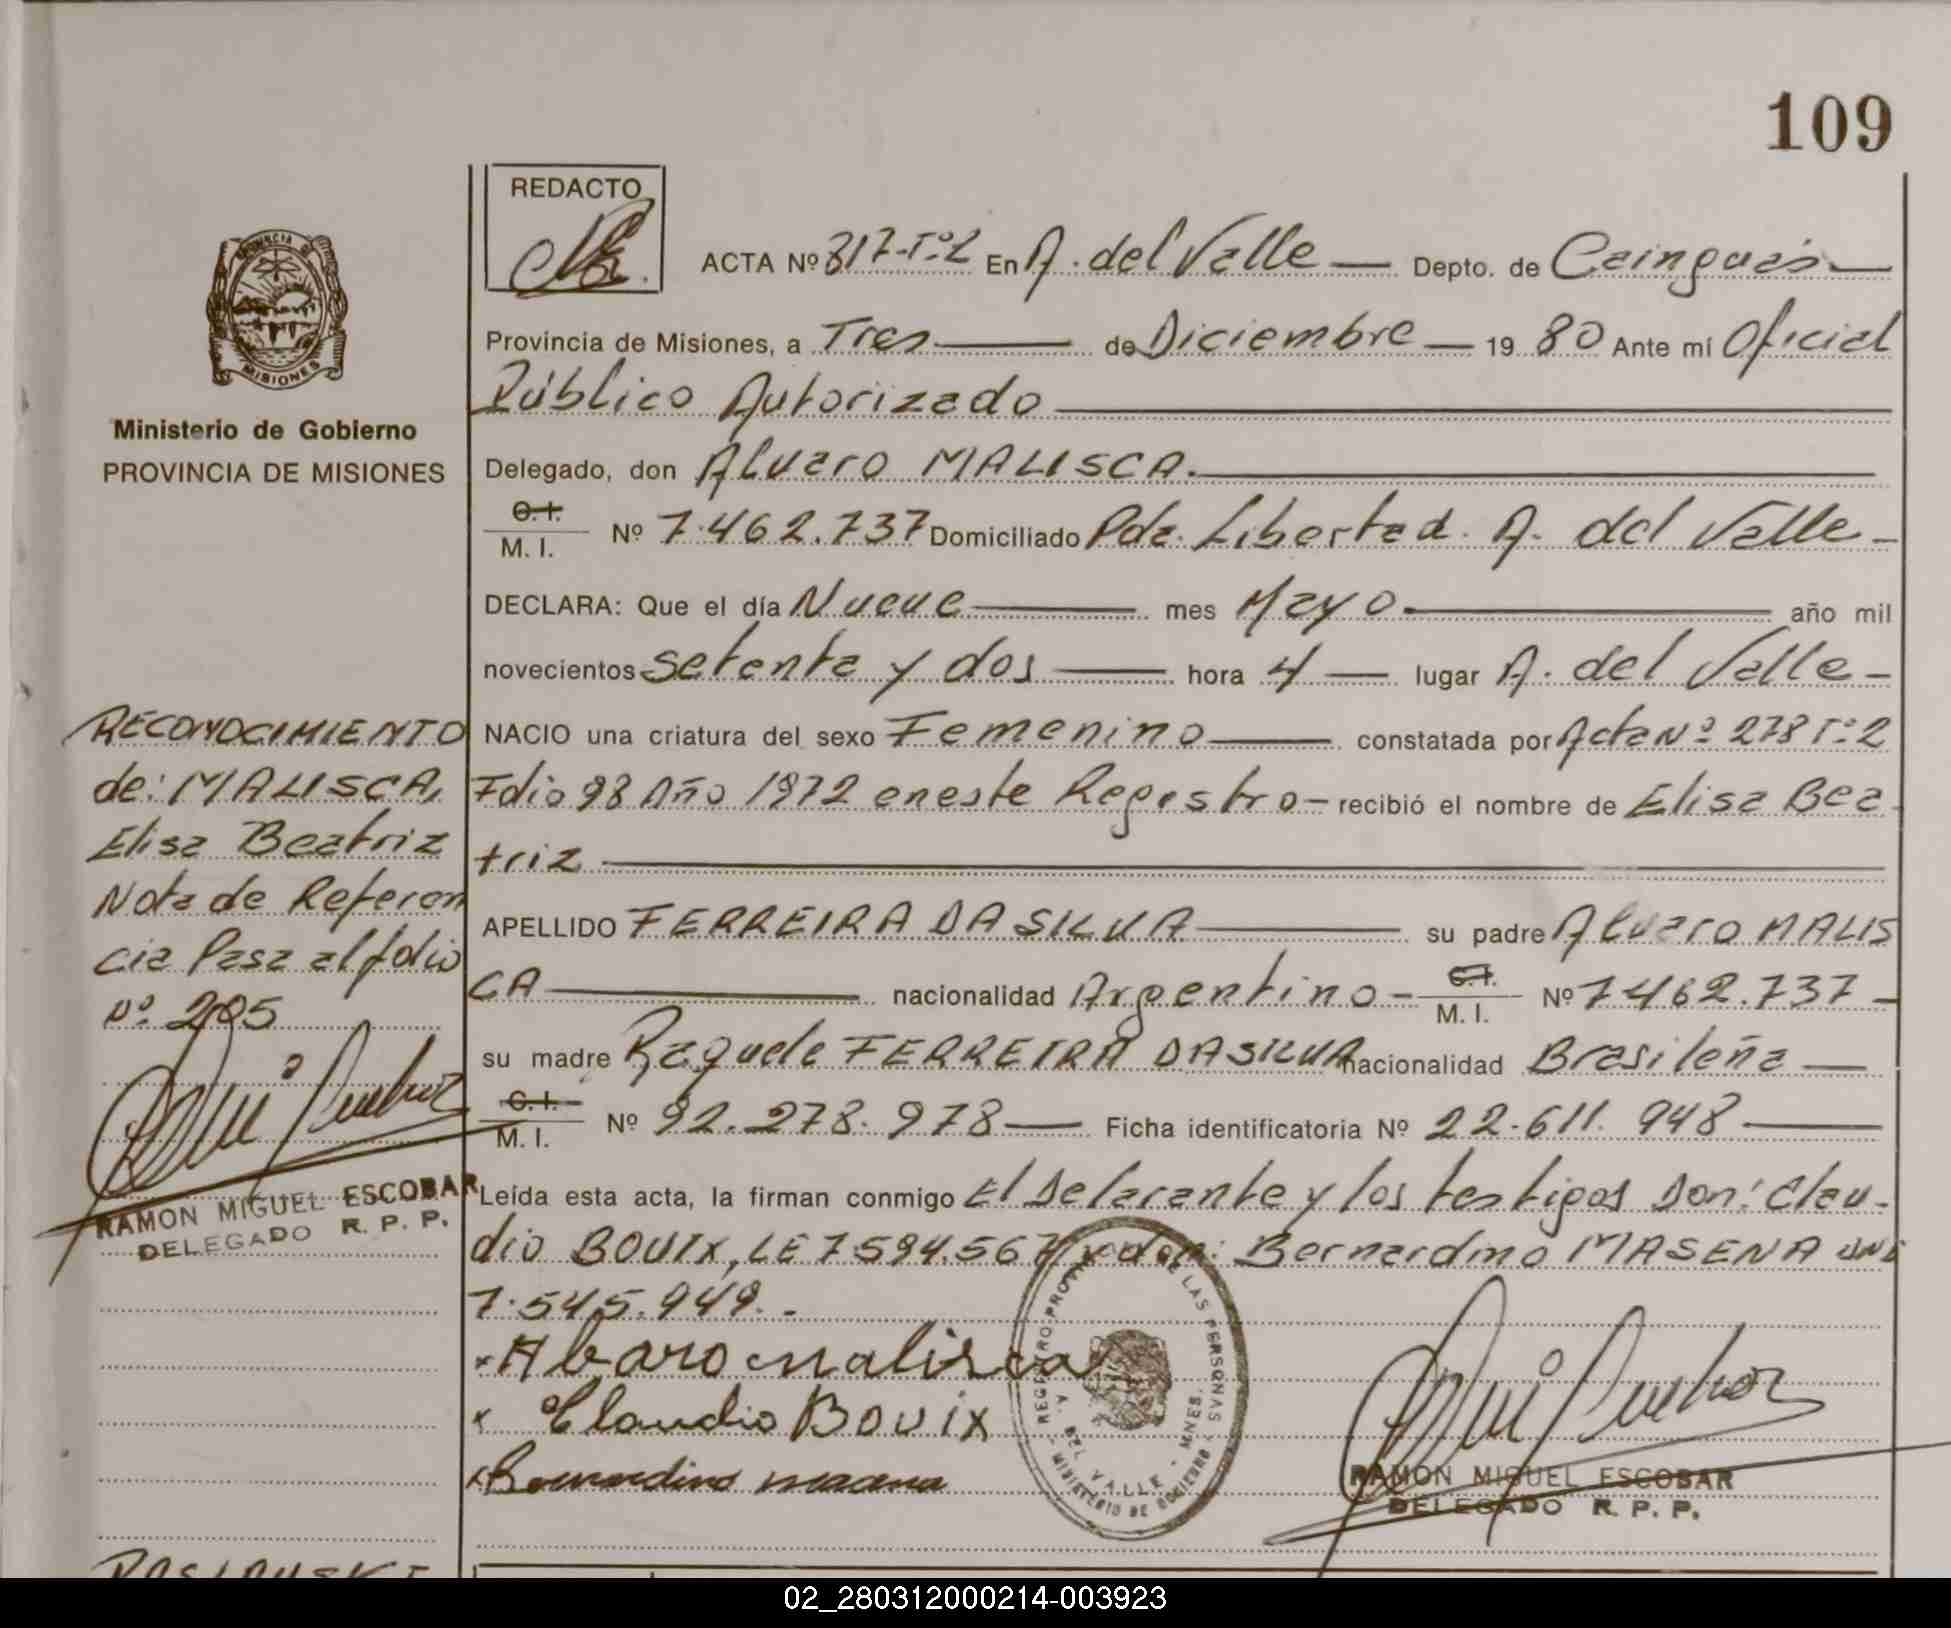 109
REDACTO
ACTA Nº 317-Tº2 En A. del Valle — Depto. de Cainguás —
Provincia de Misiones, a Tres — de Diciembre — 1980 Ante mí Oficial
Público Autorizado
Delegado, don Alvaro MALISCA.
C.I.
M. I. Nº 7.462.737 Domiciliado Pda. Libertad. A. del Valle -
DECLARA: Que el día Nueve — mes Mayo — año mil
novecientos setenta y dos — hora 4 — lugar A. del Valle -
NACIO una criatura del sexo Femenino — constatada por Acta Nº 278 Tº2
Folio 98 Año 1972 en este Regestro - recibió el nombre de Elisa Bea-
triz
APELLIDO FERREIRA DA SILVA — su padre Alvaro MALIS
CA — nacionalidad Argentino - C.I. M. I. Nº 7462.737 -
su madre Raquele FERREIRA DA SILVA nacionalidad Brasileña —
C.I.
M. I. Nº 92.278.978 — Ficha identificatoria Nº 22.611.948 —
Leída esta acta, la firman conmigo El Delarante y los testigos Don: Clau-
dio BOUIX, LE 7.594.567 y don: Bernardino MASENA DNI
7.545.949. -
x Albaro malisca
x Claudio BOUIX
x Bernardino masena
REGISTRO PROVINCIAL DE LAS PERSONAS
A. DEL VALLE - MNES.
MINISTERIO DE GOBIERNO
RAMON MIGUEL ESCOBAR
DELEGADO R. P. P.
PROVINCIA DE
MISIONES
Ministerio de Gobierno
PROVINCIA DE MISIONES
RECONOCIMIENTO
de: MALISCA,
Elisa Beatriz
Nota de Referen
cia Pasa al folio
Nº 205
RAMON MIGUEL ESCOBAR
DELEGADO R. P. P.
02_280312000214-003923